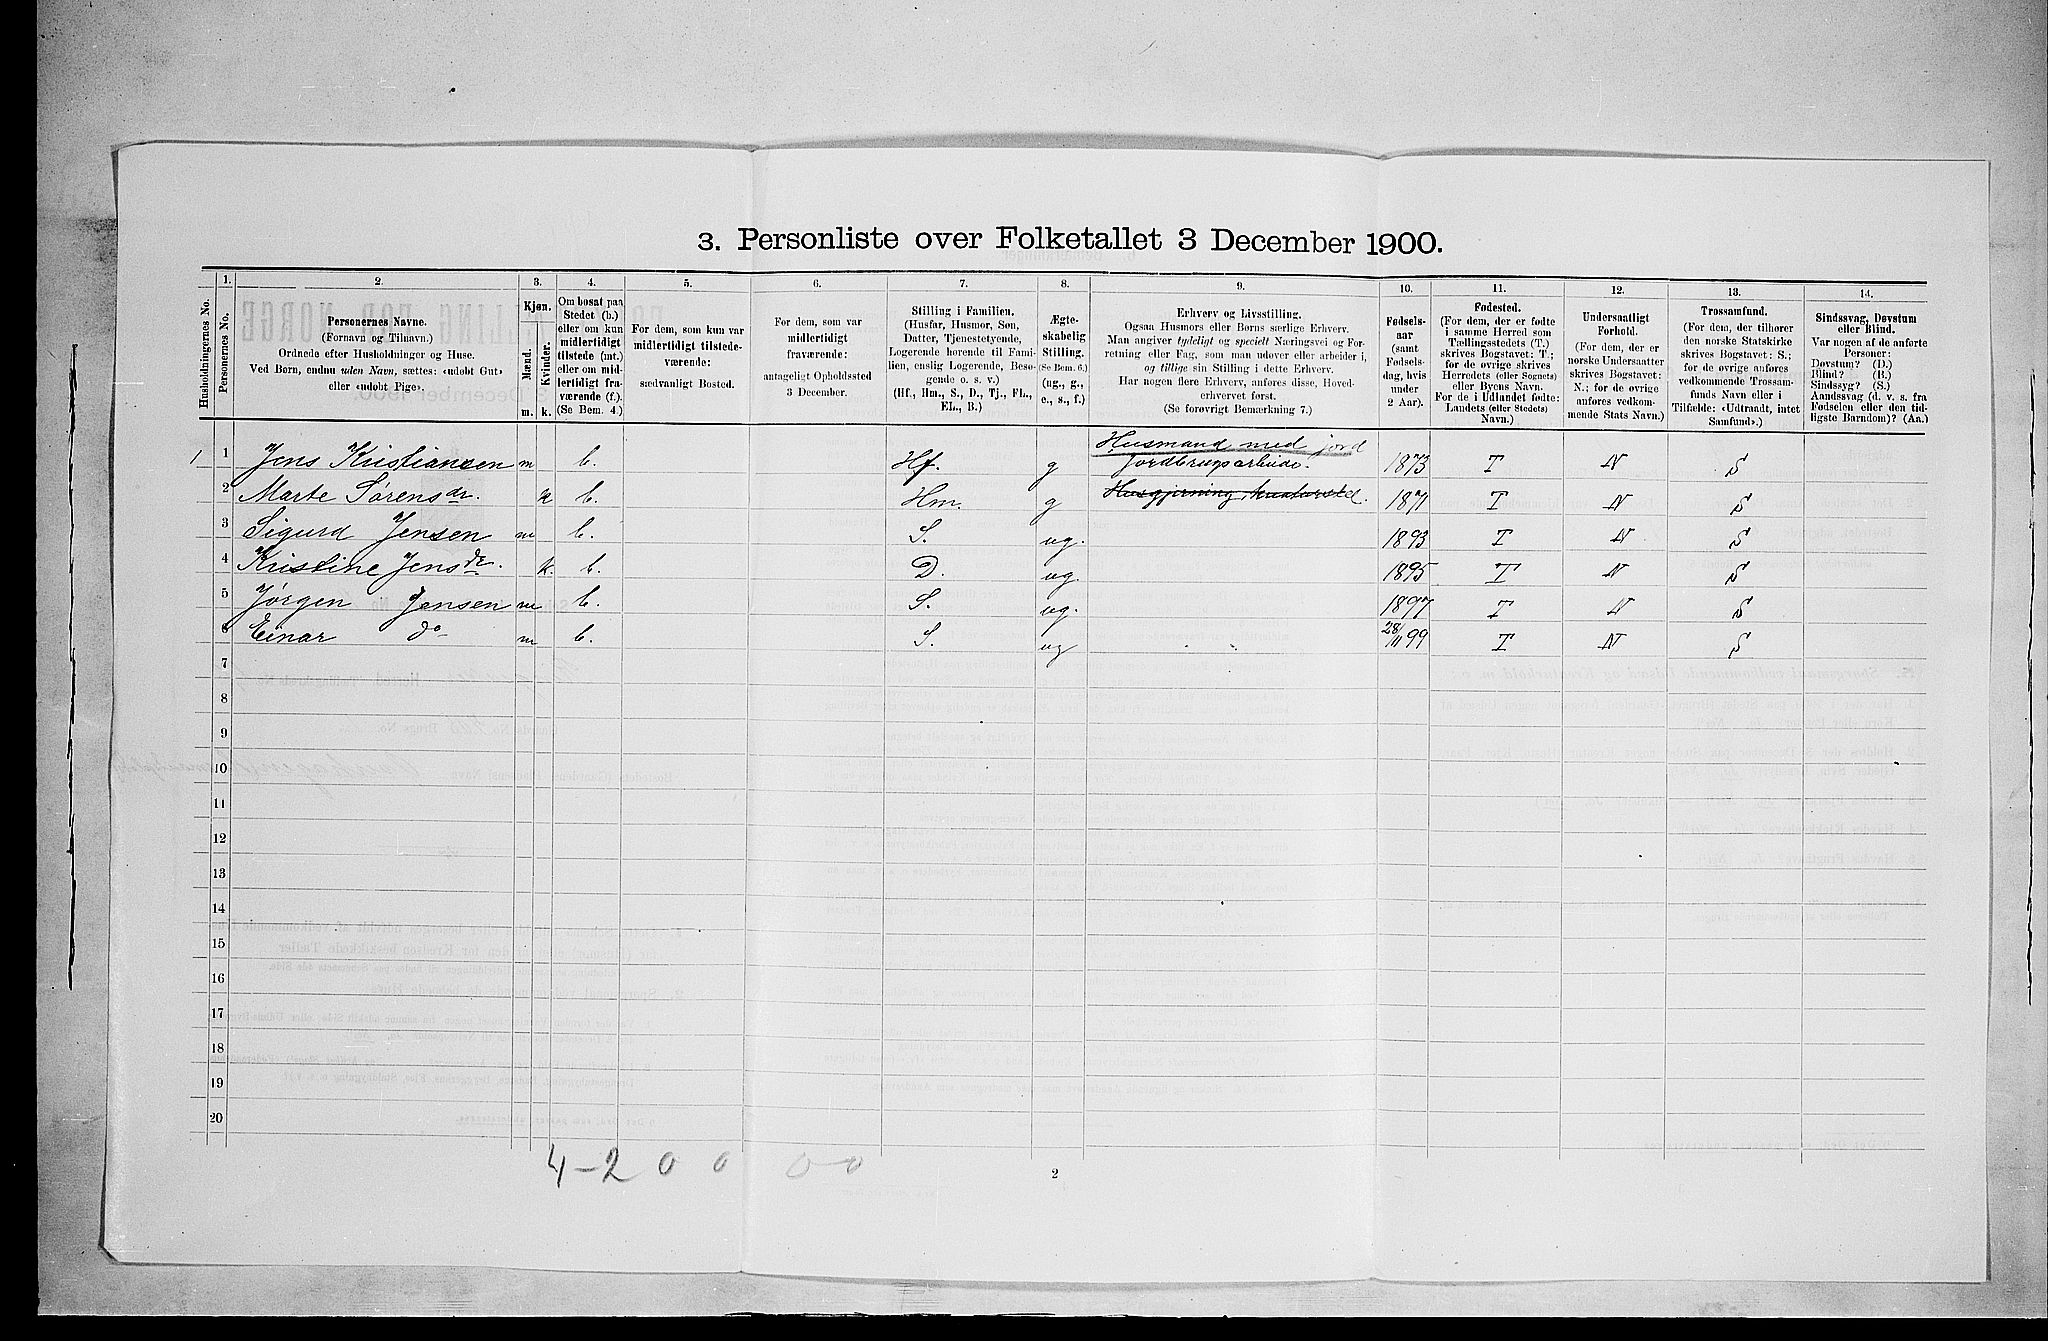 3. Personliste over Folketallet 3 December 1900.
Husholdningernes No.
1.
Personernes No.
2.
Personernes Navne.
(Fornavn og Tilnavn.)
Ordnede efter Husholdninger og Huse.
Ved Børn, endnu uden Navn, sættes: «udøbt Gut»
eller «udøbt Pige».
3.
Kjøn.
Mænd.
Kvinder.
m.
k.
4.
Om bosat paa
Stedet (b.)
eller om kun
midlertidigt
tilstede (mt.)
eller om mid-
lertidigt fra-
værende (f.).
(Se Bem. 4.)
5.
For dem, som kun var
midlertidigt tilstede-
værende:
sædvanligt Bosted.
6.
For dem, som var
midlertidigt
fraværende:
antageligt Opholdssted
3 December.
7.
Stilling i Familien.
(Husfar, Husmor, Søn,
Datter, Tjenestetyende,
Logerende hørende til Fami-
lien, enslig Logerende, Besø-
gende o. s. v.)
(Hf., Hm., S., D., Tj., FL.,
EL., B.)
8.
Ægte-
skabelig
Stilling.
(Se Bem. 6.)
(ug., g.,
e., s., f.)
9.
Erhverv og Livsstilling.
Ogsaa Husmors eller Børns særlige Erhverv.
Man angiver tydeligt og specielt Næringsvei og For-
retning eller Fag, som man udøver eller arbeider i,
og tillige sin Stilling i dette Erhverv.
Har nogen flere Erhverv, anføres disse, Hoved-
erhvervet først.
(Se forøvrigt Bemærkning 7.)
10.
Fødsels-
aar
(samt
Fødsels-
dag, hvis
under
2 Aar).
11.
Fødested.
(For dem, der er fødte
i samme Herred som
Tællingsstedets (T.)
skrives Bogstavet: T;
for de øvrige skrives
Herredets (eller Sognets)
eller Byens Navn.
For de i Udlandet fødte:
Landets (eller Stedets)
Navn.)
12.
Undersaatligt
Forhold.
(For dem, der er
norske Undersaatter
skrives Bogstavet:
N.; for de øvrige
anføres vedkom-
mende Stats Navn.)
13.
Trossamfund.
(For dem, der tilhører
den norske Statskirke
skrives Bogstavet: S.;
for de øvrige anføres
vedkommende Trossam-
funds Navn eller i
Tilfælde: «Udtraadt, intet
Samfund».)
14.
Sindssvag, Døvstum
eller Blind.
Var nogen af de anførte
Personer:
Døvstum? (D.)
Blind? (B.)
Sindssyg? (S.)
Aandssvag (d. v. s. fra
Fødselen eller den tid-
ligste Barndom)? (Aa.)
Husmand med jord
1 1 Jens Kristiansen m b. Hf. g Jordbrugsarbeide. 1873 T N S
2 Marte Sørensdr. k b. Hm. g Husgjerning, kreaturstel. 1871 T N S
3 Sigurd Jensen m b. S. ug. 1893 T N S
4 Kristine Jensdr. k. b. D. ug. 1895 T N S
5 Jørgen Jensen m b. S. ug. 1897 T N S
6 Einar do m b. S. ug 28/11 99 T N S
7
8
9
10
11
12
13
14
15
16
17
18
19
20
4-2 0 0 0-0
2